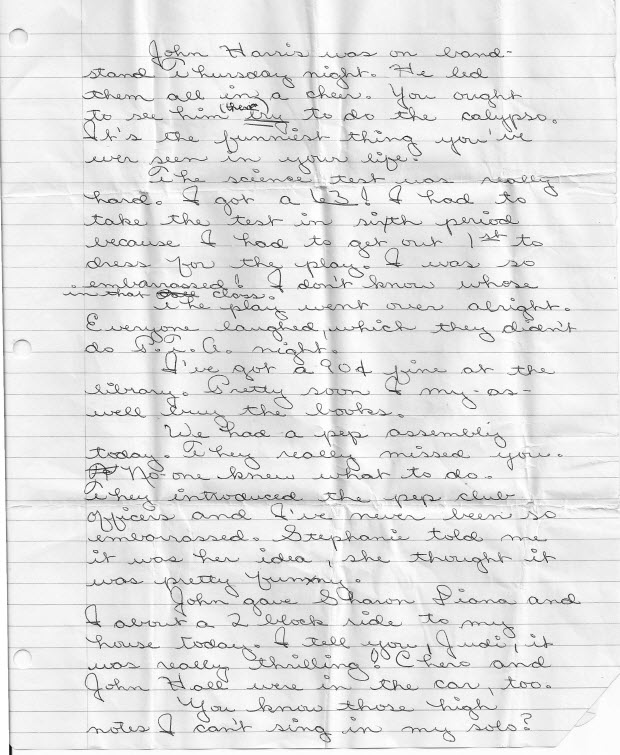 John Harris was on band-
stand Thursday night. He led
them all in a cheer. You ought
to see him (there) try to do the calypso.
It's the funniest thing you've
ever seen in your life.
The science test was really
hard. I got a 63! I had to
take the test in sixth period
because I had to get out 1st to
dress for the play. I was so
embarrassed! I don't know whose
in that class.
The play went over alright.
Everyone laughed, which they didn't
do P.T.A. night.
I've got a 90¢ fine at the
library. Pretty soon I my-as-
well buy the books.
We had a pep assembly
today. They really missed you.
No one knew what to do.
They introduced the pep club
officers and I've never been so
embarrassed. Stephanie told me
it was her idea, she thought it
was pretty funny.
John gave Sharon Diana and
I about a 2 block ride to my
house today. I tell you, Judi, it
was really thrilling! Chero and
John Hall were in the car, too.
You know those high
notes I can't sing in my solo?